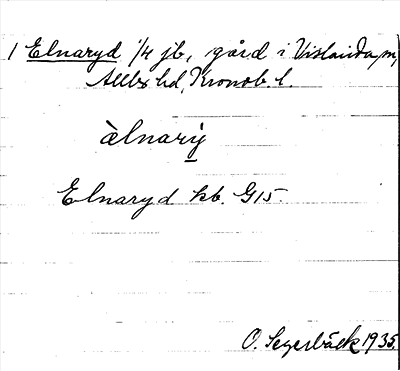 1 Elnaryd 1/4 jb, gård i Vislanda sn,
Allbo hd, Kronob. l.
àlnarÿ
Elnaryd kb. G15.
O. Segerbäck 1935.